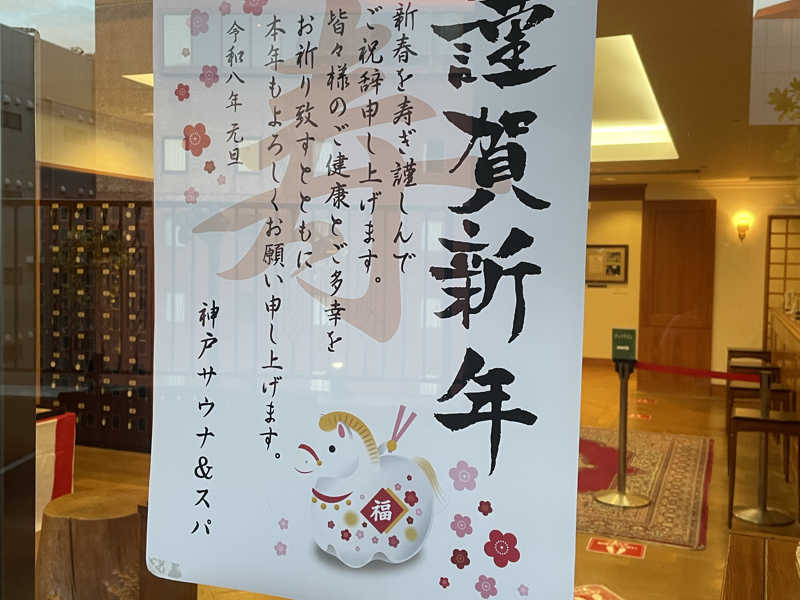 謹賀新年
新春を寿ぎ謹しんで
ご祝辞申し上げます。
皆々様のご健康とご多幸を
お祈り致すとともに
本年もよろしくお願い申し上げます。
令和八年 元旦
神戸サウナ&スパ
寿
福